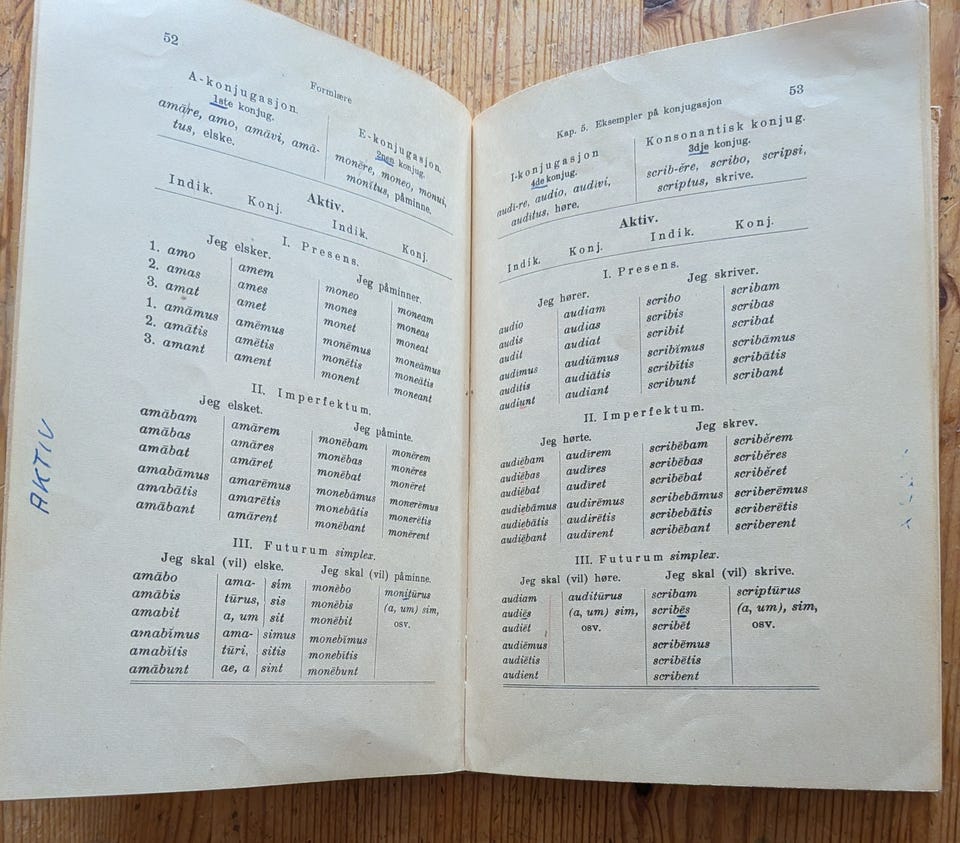 52
Formlære
A-konjugasjon.
1ste konjug.
amāre, amo, amāvi, amā-
tus, elske.
E-konjugasjon.
2nen konjug.
monēre, moneo, monui,
monĭtus, påminne.
Aktiv.
Indik. Konj. Indik. Konj.
I. Presens.
Jeg elsker. Jeg påminner.
1. amo amem moneo moneam
2. amas ames mones moneas
3. amat amet monet moneat
1. amāmus amēmus monēmus moneāmus
2. amātis amētis monētis moneātis
3. amant ament monent moneant
II. Imperfektum.
Jeg elsket. Jeg påminte.
amābam amārem monēbam monērem
amābas amāres monēbas monēres
amābat amāret monēbat monēret
amabāmus amarēmus monebāmus monerēmus
amabātis amarētis monebātis monerētis
amābant amārent monēbant monērent
III. Futurum simplex.
Jeg skal (vil) elske. Jeg skal (vil) påminne.
amābo ama- sim monēbo monitūrus
amābis tūrus, sis monēbis (a, um) sim,
amabit a, um sit monēbit osv.
amabĭmus ama- simus monebĭmus
amabĭtis tūri, sitis monebĭtis
amābunt ae, a sint monēbunt
AKTIV
53
Kap. 5. Eksempler på konjugasjon
I-konjugasjon
4de konjug.
audi-re, audio, audivi,
auditus, høre.
Konsonantisk konjug.
3dje konjug.
scrib-ĕre, scribo, scripsi,
scriptus, skrive.
Aktiv.
Indik. Konj. Indik. Konj.
I. Presens.
Jeg hører. Jeg skriver.
audio audiam scribo scribam
audis audias scribis scribas
audit audiat scribit scribat
audīmus audiāmus scribĭmus scribāmus
audītis audiātis scribĭtis scribātis
audiunt audiant scribunt scribant
II. Imperfektum.
Jeg hørte. Jeg skrev.
audiēbam audīrem scribēbam scribĕrem
audiēbas audīres scribēbas scribĕres
audiēbat audīret scribēbat scribĕret
audiebāmus audirēmus scribebāmus scriberēmus
audiebātis audirētis scribebātis scriberētis
audiēbant audīrent scribēbant scriberent
III. Futurum simplex.
Jeg skal (vil) høre. Jeg skal (vil) skrive.
audiam auditūrus scribam scriptūrus
audiēs (a, um) sim, scribēs (a, um), sim,
audiĕt osv. scribĕt osv.
audiēmus scribēmus
audiētis scribētis
audient scribent